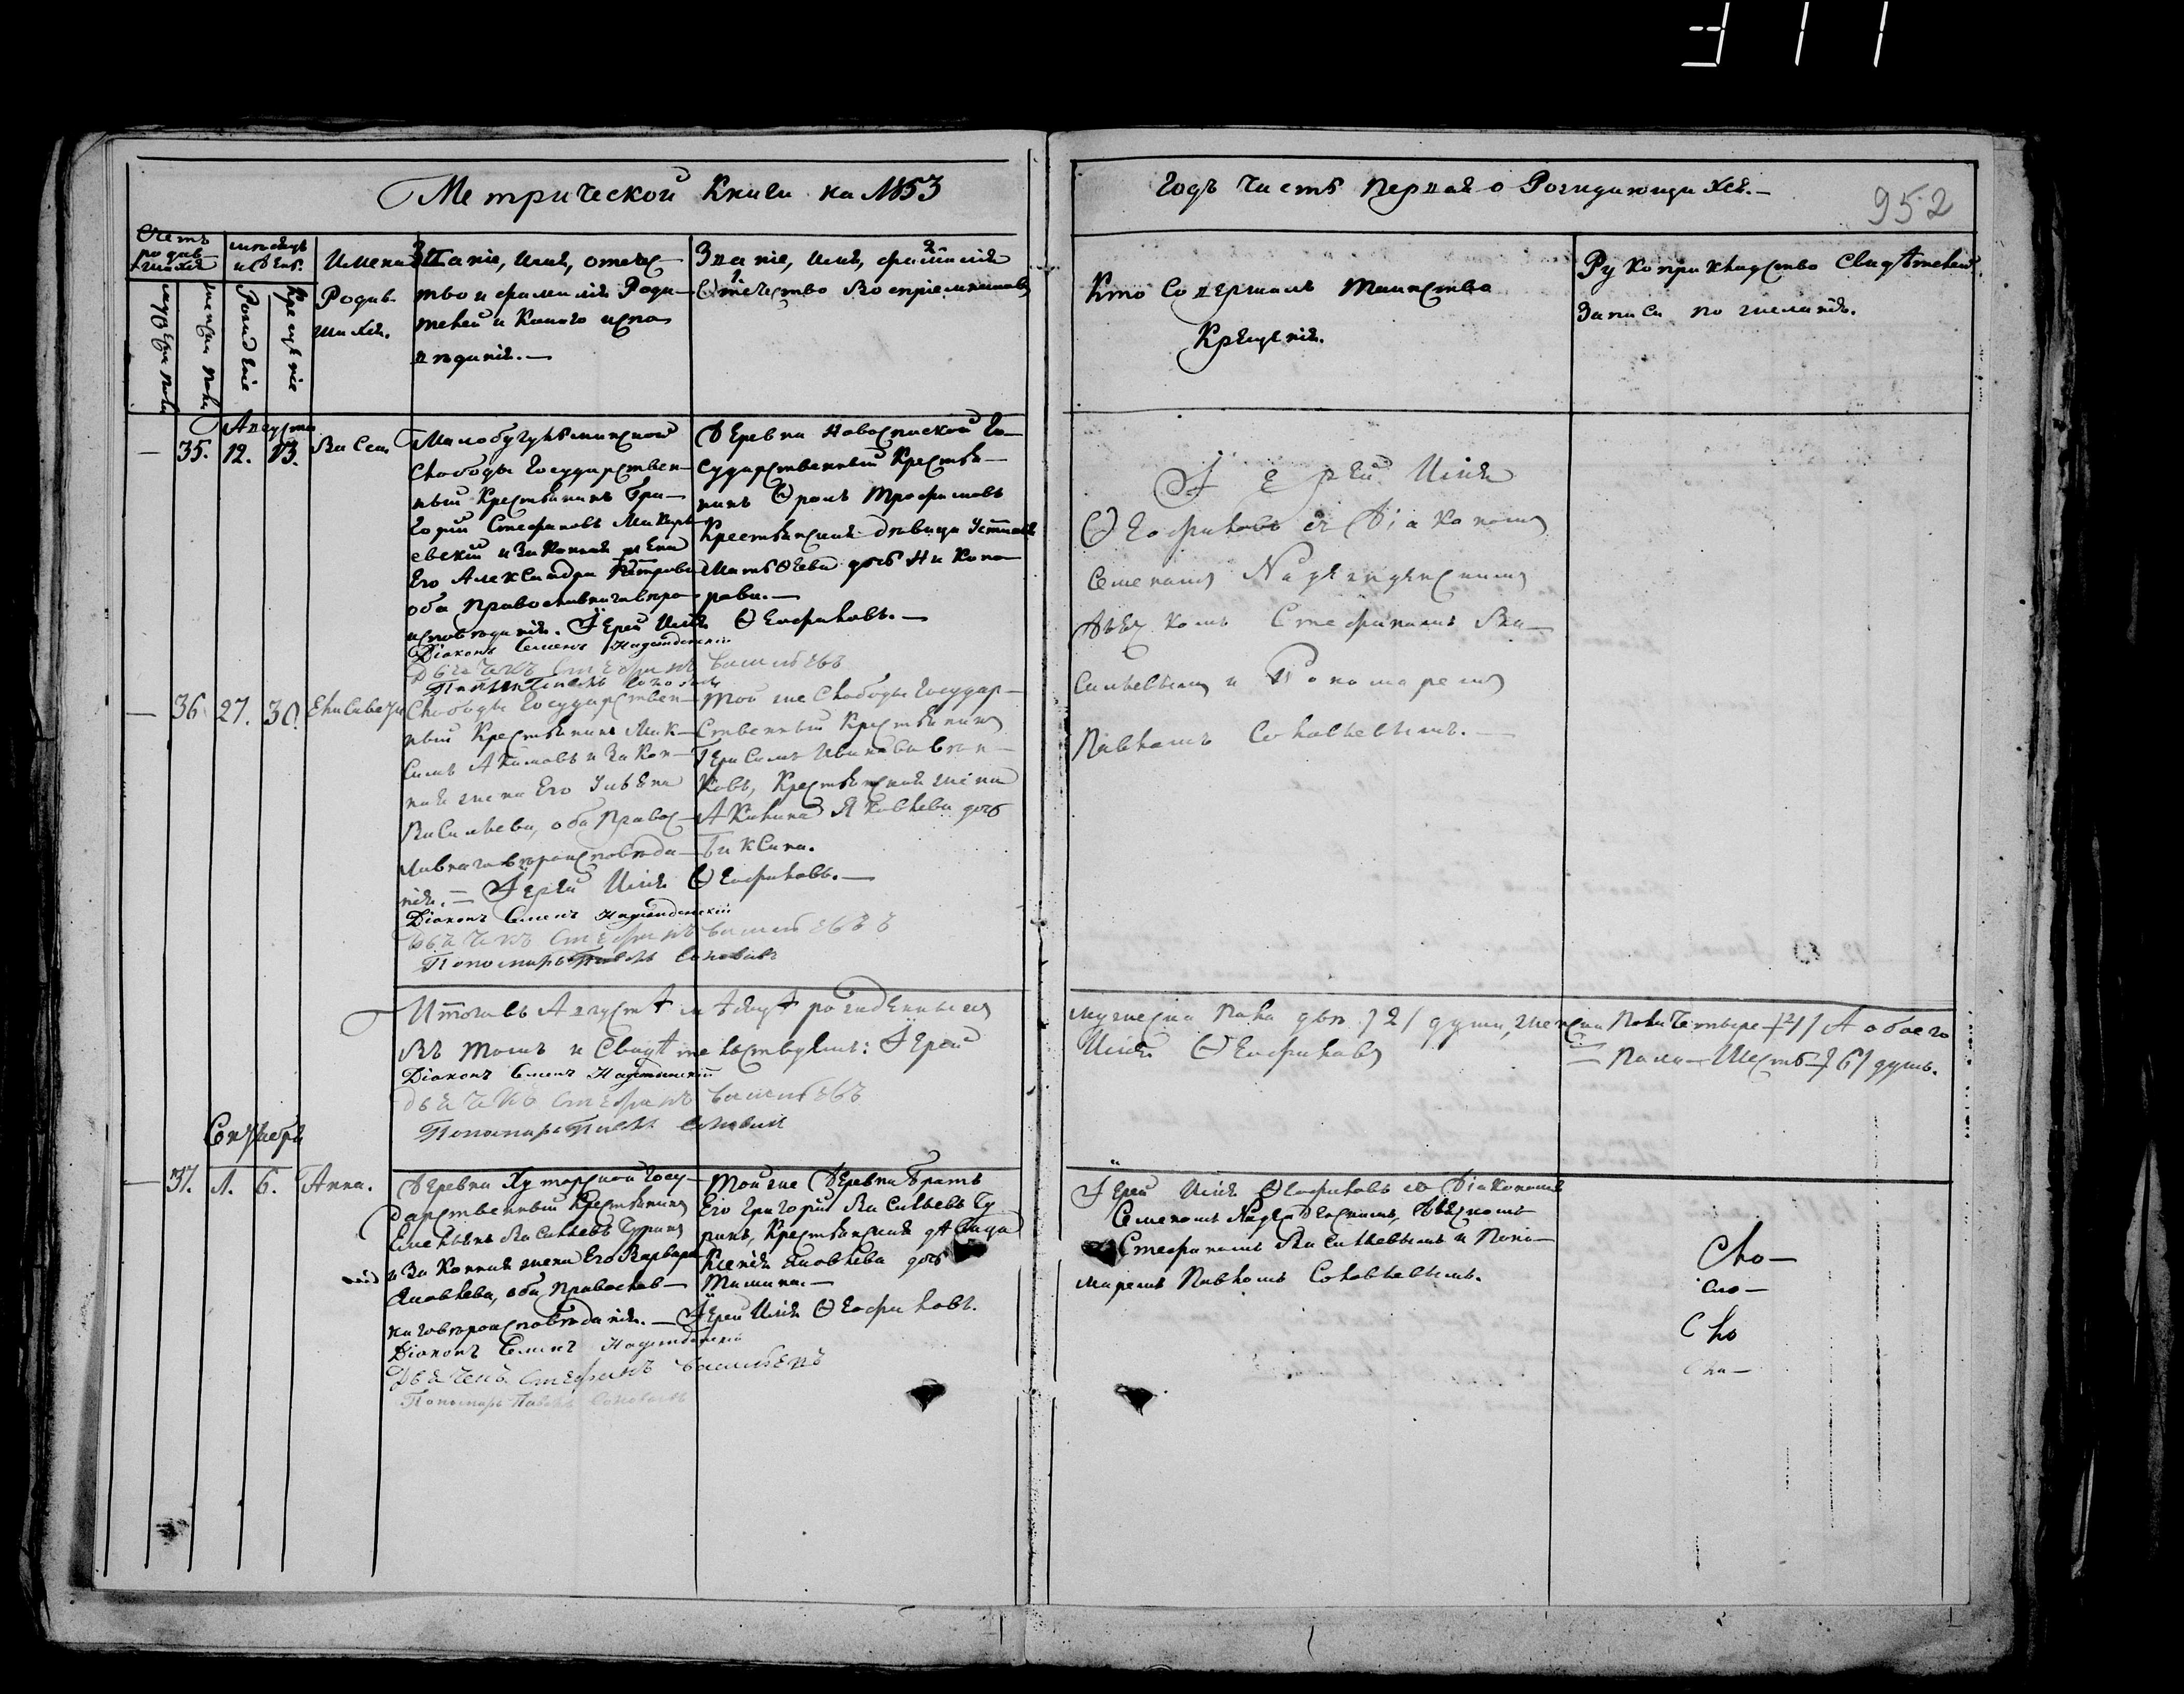 Метрической Книги на 1853
годъ часть первая о Рождающихся.—
952
Счетъ родив-шихся
мѣсяцъ и день.
мужеска пола
женска пола
Рожденіе
Крещеніе
Имена
Родив-
шихся.
Званіе, имя, отчес-
тво и фамилія Роди-
телей и какого испо-
вѣданія.—
Званіе, имя, фамилія
Отчество Воспріемниковъ
Кто Совершалъ таинство
Крещенія.
Рукоприкладство Свидѣтелей
Записи по желанію.
Августа
— 35. 12. 13.
Малобугульминской
Слободы Государствен-
ный Крестьянинъ Гри-
горій Стефановъ Макарь-
евскій и Законная жена
Его Александра Петрова
оба православнаго вѣро-
исповѣданія. Іерей Илія Ѳеофиловъ.—
Діаконъ Семенъ Надеждинскій
Дьячекъ Стефанъ Васильевъ
Деревни Новоспаской Го-
сударственный Крестья-
нинъ Фролъ Трофимовъ
Крестьянская дѣвица
Матвѣева дочь Никоно-
рова.—
Іерей Илія
Ѳеофиловъ съ Діакономъ
Семеномъ Надеждинскимъ
Дьячкомъ Стефаномъ Ва-
сильевымъ и Пономаремъ
Павломъ Соловьевымъ.—
— 36 27. 30. Елисавета
Слободы Государствен-
ный Крестьянинъ Мак-
симъ Акимовъ и Закон-
ная жена Его
Васильева, оба Правос-
лавнаго вѣроисповѣда-
нія.— Іерей Илія Ѳеофиловъ.—
Діаконъ Семенъ Надеждинскій
Дьячекъ Стефанъ Васильевъ
Пономарь Павелъ Соловьевъ
Той же Слободы Государ-
ственный Крестьянинъ
Герасимъ Ивановъ
Крестьянская жена
Акилина Яковлева дочь
Итого въ Августѣ мѣсяцѣ рожденныхъ
мужеска пола двѣ /2/ души, женска пола Четыре /4/ А обоего
пола— Шесть /6/ душъ.
Въ томъ и Свидѣтельствуемъ: Іерей
Илія Ѳеофиловъ
Діаконъ Семенъ Надеждинскій
Дьячекъ Стефанъ Васильевъ
Пономарь Павелъ Соловьевъ
Сентября
— 37. 1. 6. Анна.
Деревни Хуторской Госу-
дарственный Крестьянинъ
Емельянъ Васильевъ Туринъ
и Законная жена Его Варвара
Яковлева, оба Православ-
наго вѣроисповѣданія.— Іерей Илія Ѳеофиловъ.
Діаконъ Семенъ Надеждинскій
Дьячекъ Стефанъ Васильевъ
Пономарь Павелъ Соловьевъ
Той же Деревни Братъ
Его Григорій Васильевъ Ту-
ринъ, Крестьянская дѣвица
Ксенія Яковлева дочь
Іерей Илія Ѳеофиловъ со Діакономъ
Семеномъ Надеждинскимъ, Дьячкомъ
Стефаномъ Васильевымъ и Поно-
маремъ Павломъ Соловьевымъ.